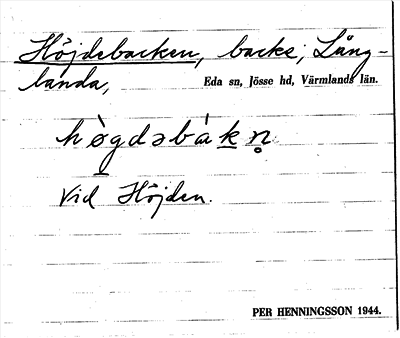 Höjdebacken, backe, Lång-
landa, Eda sn, Jösse hd, Värmlands län.
hø̀gdəbàkn̥
Vid Höjden.
PER HENNINGSSON 1944.